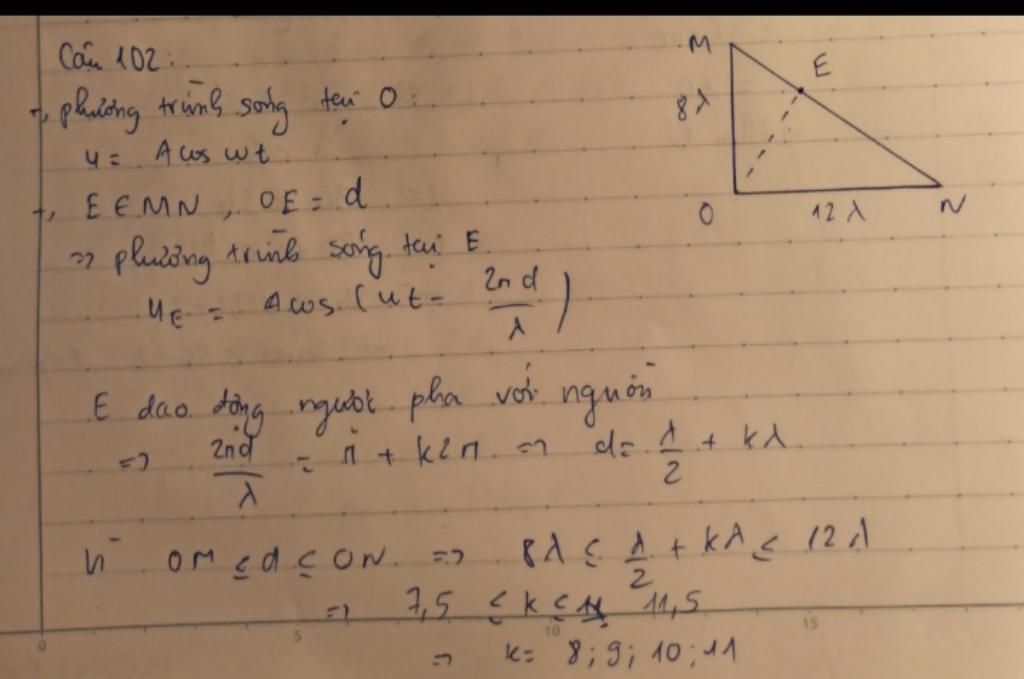 Câu 102:
+, phương trình sóng tại O:
u = A cos ωt
+, E ∈ MN, OE = d
=> phương trình sóng tại E
u_E = A cos (ωt - 2πd/λ)
E dao động ngược pha với nguồn
=> 2πd/λ = π + k2π => d = λ/2 + kλ
Vì OM ≤ d ≤ ON => 8λ ≤ λ/2 + kλ ≤ 12λ
=> 7,5 ≤ k ≤ 11,5
=> k = 8; 9; 10; 11
M
E
8λ
O
12λ
N
0 5 10 15